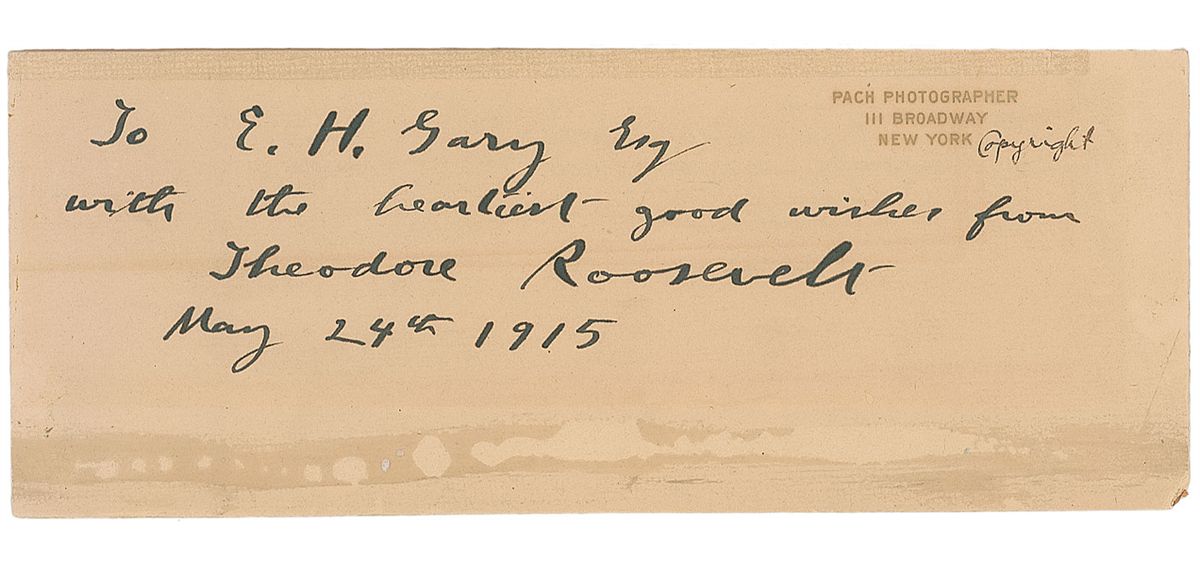 PACH PHOTOGRAPHER
111 BROADWAY
NEW YORK Copyright
To E. H. Gary Esq
with the heartiest good wishes from
Theodore Roosevelt
May 24th 1915